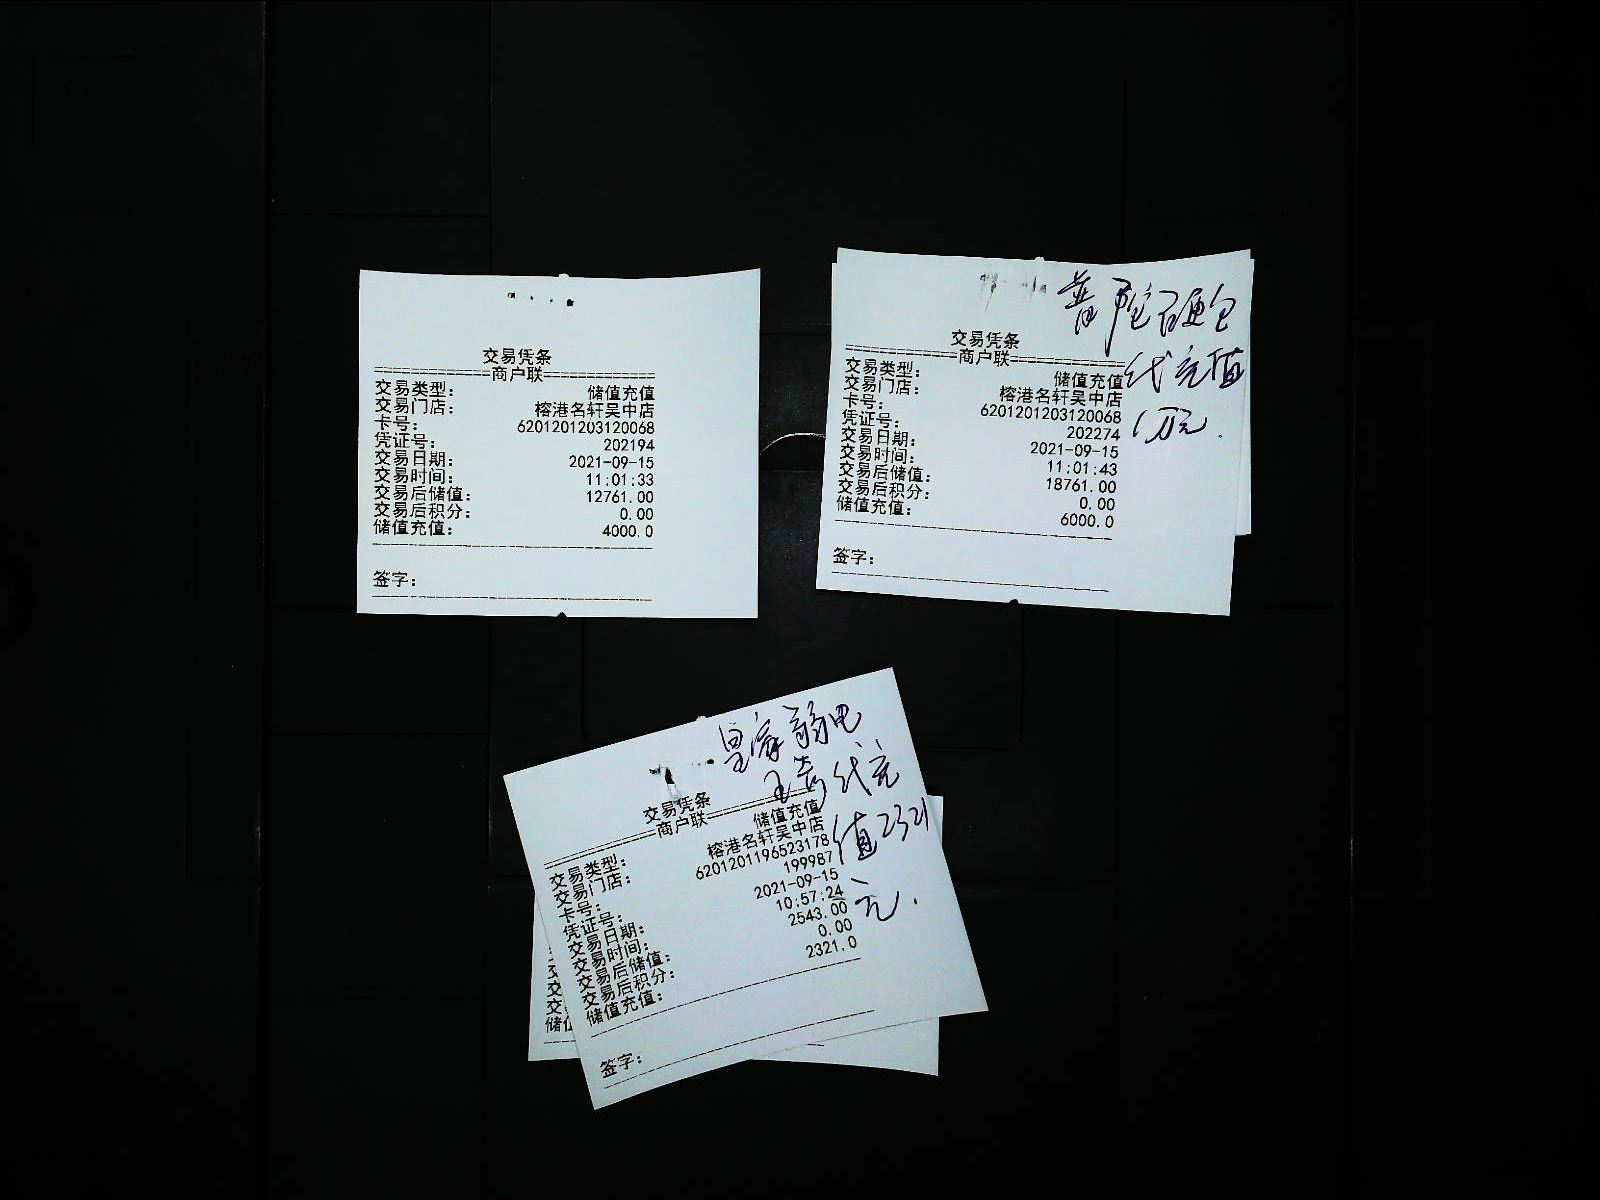 交易凭条
=============商户联=============
交易类型： 储值充值
交易门店： 榕港名轩吴中店
卡号： 6201201203120068
凭证号： 202194
交易日期： 2021-09-15
交易时间： 11:01:33
交易后储值： 12761.00
交易后积分： 0.00
储值充值： 4000.0
签字：
普陀石硬包
代充值
1万元.
交易凭条
=============商户联=============
交易类型： 储值充值
交易门店： 榕港名轩吴中店
卡号： 6201201203120068
凭证号： 202274
交易日期： 2021-09-15
交易时间： 11:01:43
交易后储值： 18761.00
交易后积分： 0.00
储值充值： 6000.0
签字：
皇家弱电
代充
值2321
元.
交易凭条
=============商户联=============
交易类型： 储值充值
交易门店： 榕港名轩吴中店
卡号： 6201201196523178
凭证号： 199987
交易日期： 2021-09-15
交易时间： 10:57:24
交易后储值： 2543.00
交易后积分： 0.00
储值充值： 2321.0
签字：
交
交
交
储值